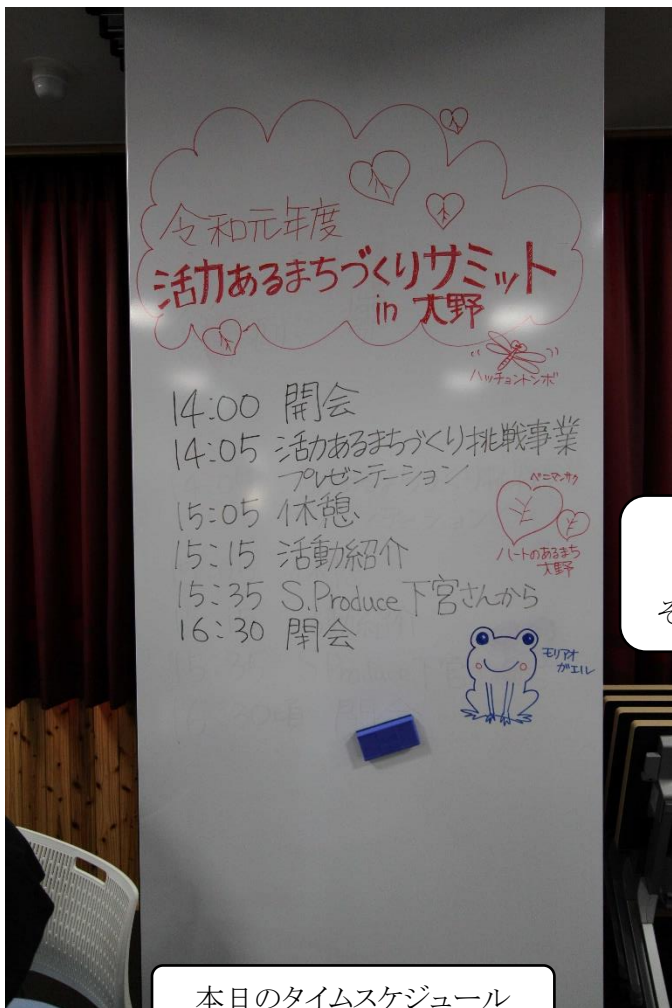 令和元年度
活力あるまちづくりサミット
in 大野
ハッチョウトンボ
14:00 開会
14:05 活力あるまちづくり挑戦事業
プレゼンテーション
15:05 休憩
15:15 活動紹介
15:35 S.Produce 下宮さんから
16:30 閉会
ベニマンサク
ハートのあるまち
大野
モリアオ
ガエル
そ
本日のタイムスケジュール